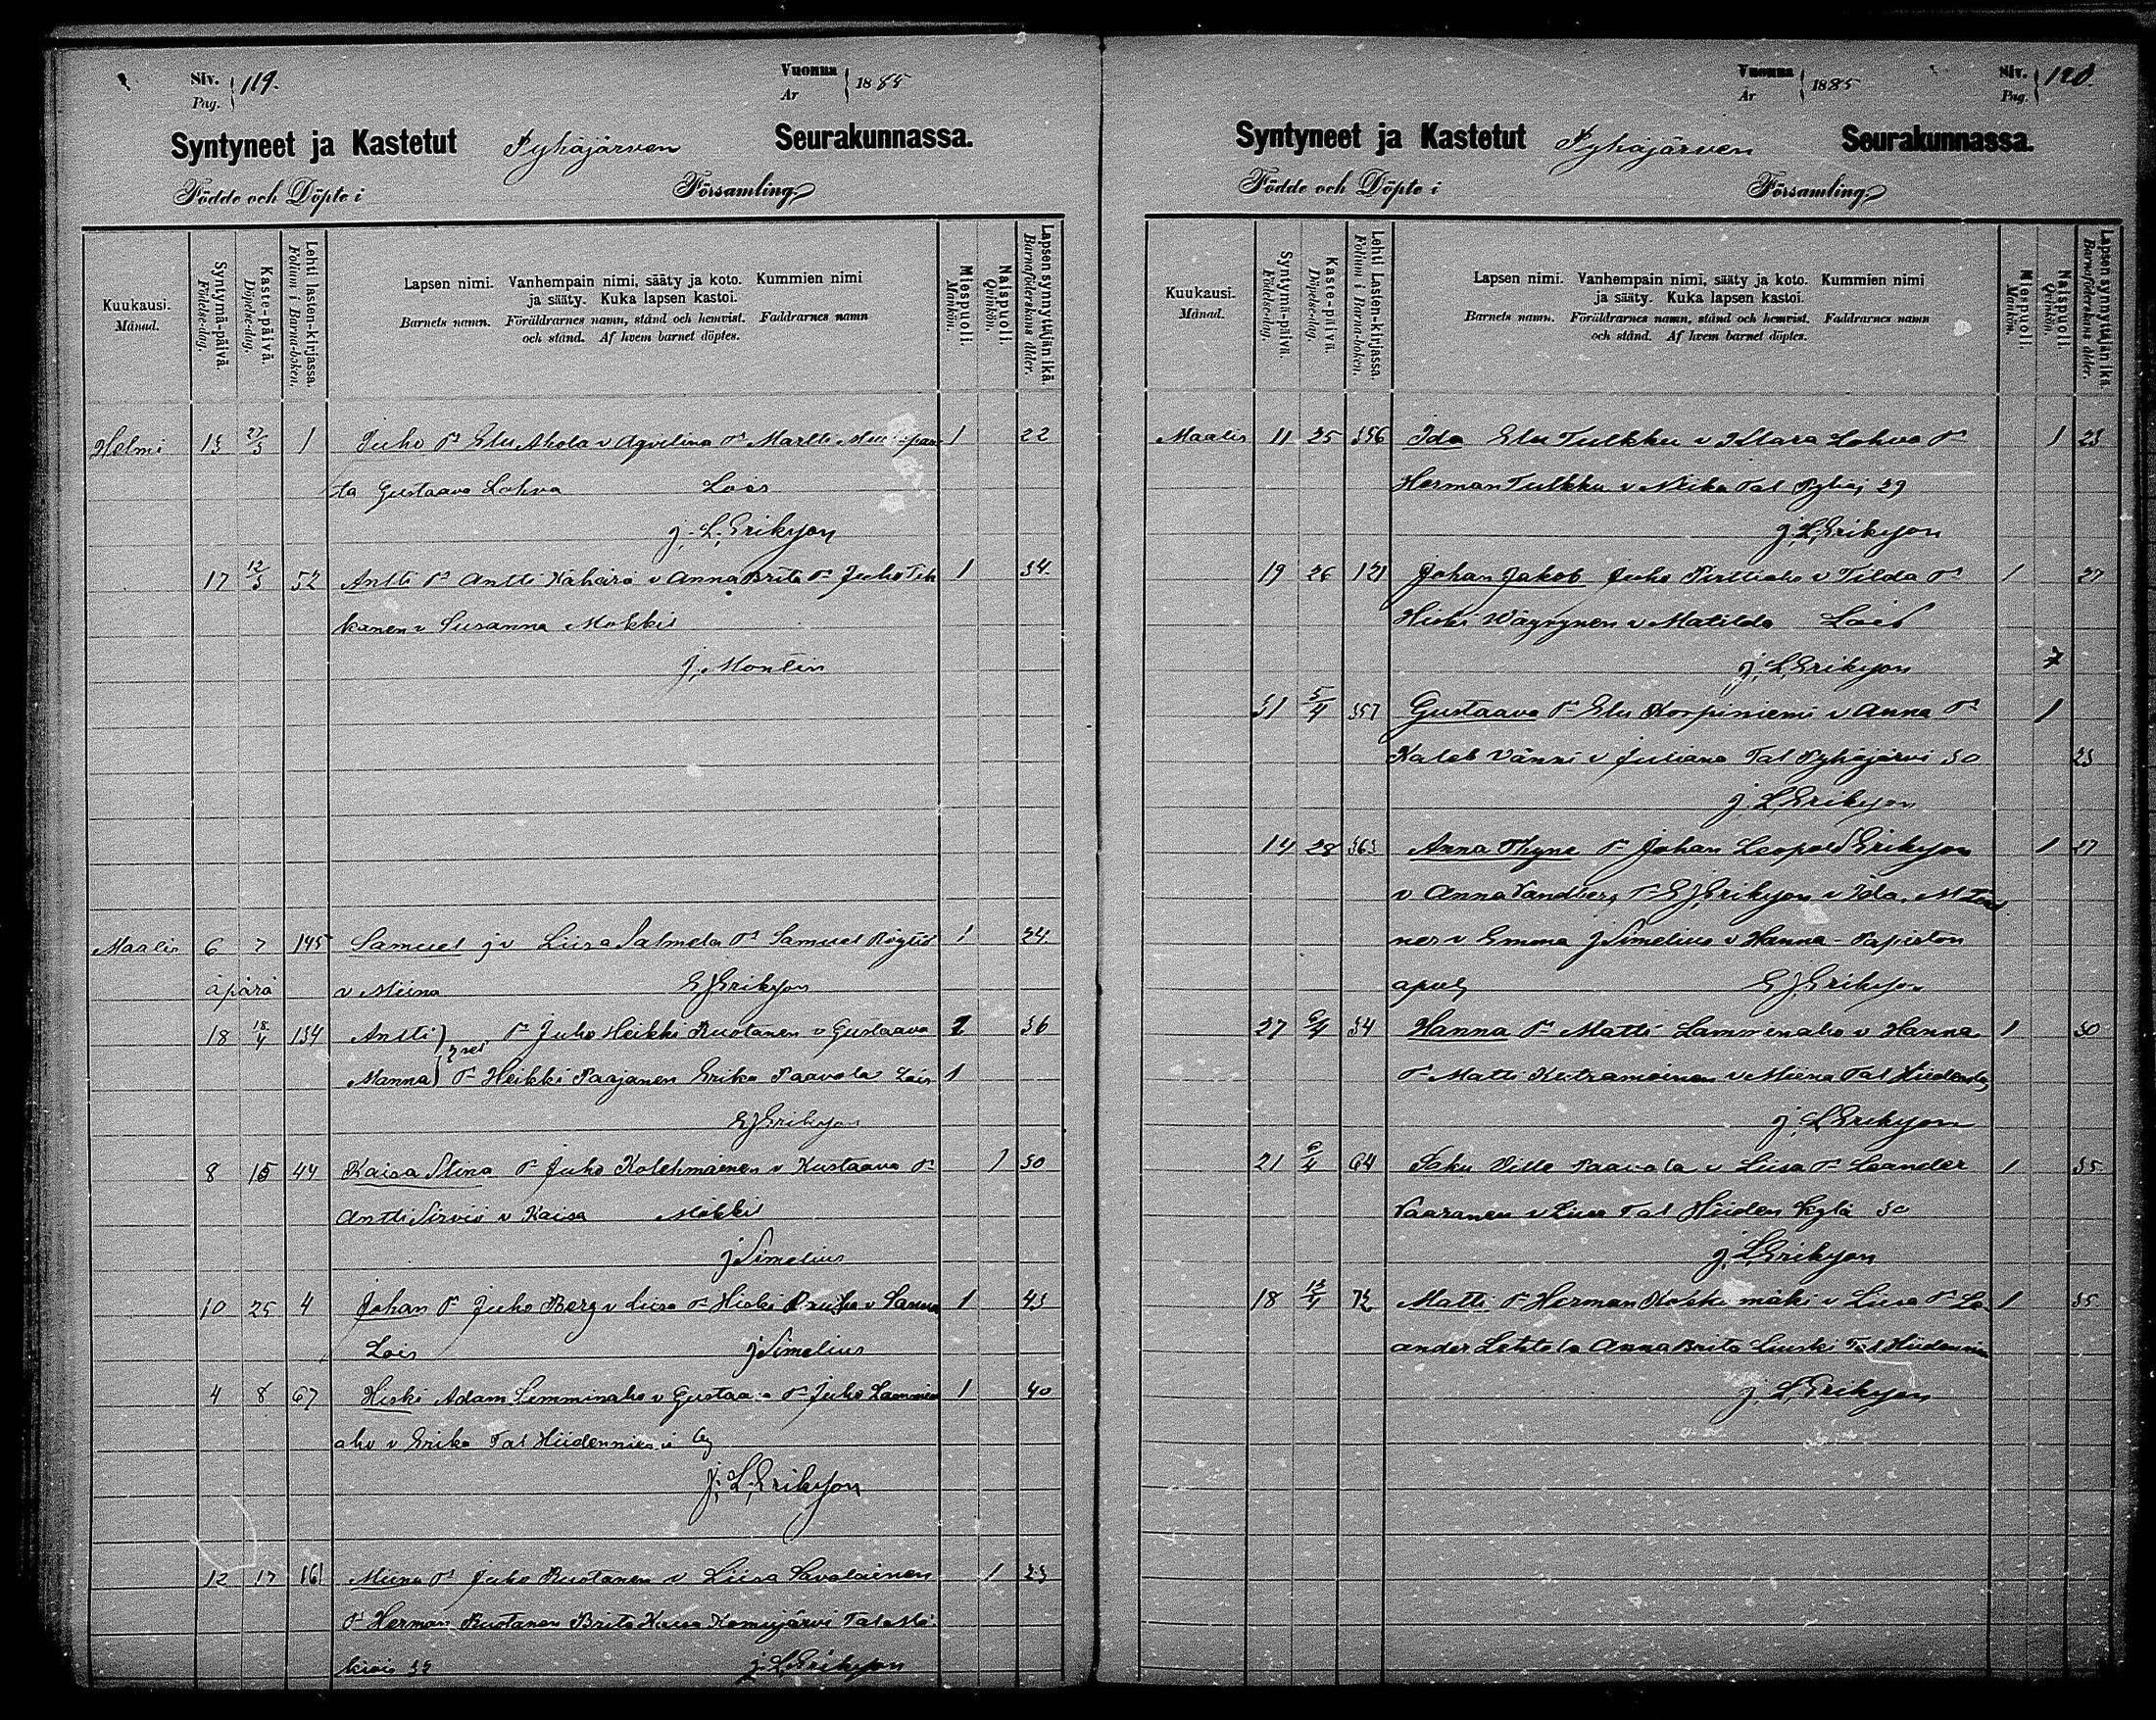 Siv.
Pag. 119.
Vuonna
År 1885
Syntyneet ja Kastetut Pyhäjärven Seurakunnassa.
Födde och Döpte i Församling
Kuukausi.
Månad.
Syntymä-päivä.
Födelse-dag.
Kaste-päivä.
Döpelse-dag.
Lehti lasten-kirjassa.
Folium i Barna-boken.
Lapsen nimi. Vanhempain nimi, sääty ja koto. Kummien nimi
ja sääty. Kuka lapsen kastoi.
Barnets namn. Föräldrarnes namn, stånd och hemvist. Faddrarnes namn
och stånd. Af hvem barnet döptes.
Miespuoli.
Mankön.
Naispuoli.
Qvinkön.
Lapsen synnyttäjän ikä.
Barnaföderskans ålder.
Helmi 13 27/3 1 Juho Elu Ahola v Agvelina Martti 1 22
ta Gustaava Lohva Lois
J. L. Erikson
17 12/3 52 Antti Antti Kähärä v Anna Brita Juho Tih 1 34
kanen v Susanna Mökkil
J. Montin
Maalis 6 7 145 Samuel j v Liisa Salmela Samuel 1 24
äpärä v Miina E J Erikson
18 18/4 134 Antti Juho Heikki Ruotanen v Gustaava 36
Manna Heikki Paajanen Erika Paavola Lois 1
E J Erikson
8 15 44 Kaisa Stina Juho Kolehmainen v Kustaava 1 30
Antti Sirviö v Kaisa Mökkil
J Simelius
10 25 4 Johan Juho Berg v Liisa Hiski v Sanna 1 43
Lois J Simelius
4 8 67 Hiski Adam Lemminaho v Gustaava Juho Lammin 1 40
aho v Erika Tal Hiidenniemi
J. L. Erikson
12 17 161 Miina Juho Ruotanen v Liisa Savolainen 1 23
Herman Ruotanen Brita Kaisa Komujärvi Tal
J. L. Erikson
Vuonna
År 1885
Siv.
Pag. 120.
Syntyneet ja Kastetut Pyhäjärven Seurakunnassa.
Födde och Döpte i Församling
Kuukausi.
Månad.
Syntymä-päivä.
Födelse-dag.
Kaste-päivä.
Döpelse-dag.
Lehti Lasten-kirjassa.
Folium i Barna-boken.
Lapsen nimi. Vanhempain nimi, sääty ja koto. Kummien nimi
ja sääty. Kuka lapsen kastoi.
Barnets namn. Föräldrarnes namn, stånd och hemvist. Faddrarnes namn
och stånd. Af hvem barnet döptes.
Miespuoli.
Mankön.
Naispuoli.
Qvinkön.
Lapsen synnyttäjän ikä.
Barnaföderskans ålder.
Maalis 11 25 356 Ida Elu Tulkku v Klara Lohva 1 23
Herman Tulkku v Miika Tal Pyhäj 29
J. L. Erikson
19 26 121 Johan Jakob Juho Pirttiaho v Tilda 1 27
Hiski Wäyrynen v Matilda Lois
J. L. Erikson
31 5/4 357 Gustaava Elu Korpiniemi v Anna 1
Kaleb Vänni v Juliana Tal Pyhäjärvi 30 23
J. L. Erikson
14 28 363 Anna Thyne Johan Leopold Erikson 1 27
v Anna Vandberg E J Erikson v Ida,
ner v Emma J Simelius v Hanna
E J Erikson
27 6/4 34 Hanna Matti Lamminaho v Hanna 1 30
Matti v Miina Tal
J. L. Erikson
21 6/4 64 Saku Ville Paavola v Liisa Leander 1 35
Vaaranen v Liisa Tal Hiiden Kylä 30
J. L. Erikson
18 13/4 72 Matti Herman Koskimäki v Liisa Le 1 35
ander Lehtola Anna Brita Tal Hiidenniem
J. L. Erikson